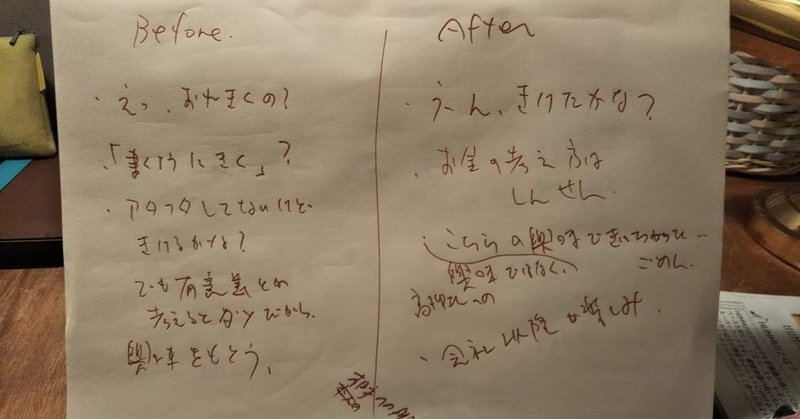 Before.
・えっ、おれきくの？
・「書くようにきく」？
・アタフタしてないけど、
きけるかな？
でも有意義とか
考えるとダメだから、
興味をもとう、
After
・うーん、きけたかな？
・お金の考え方は
しんせん。
・こちらの興味できいちゃって…
ごめん。
興味ではなく、
への
・会社以降が楽しみ。